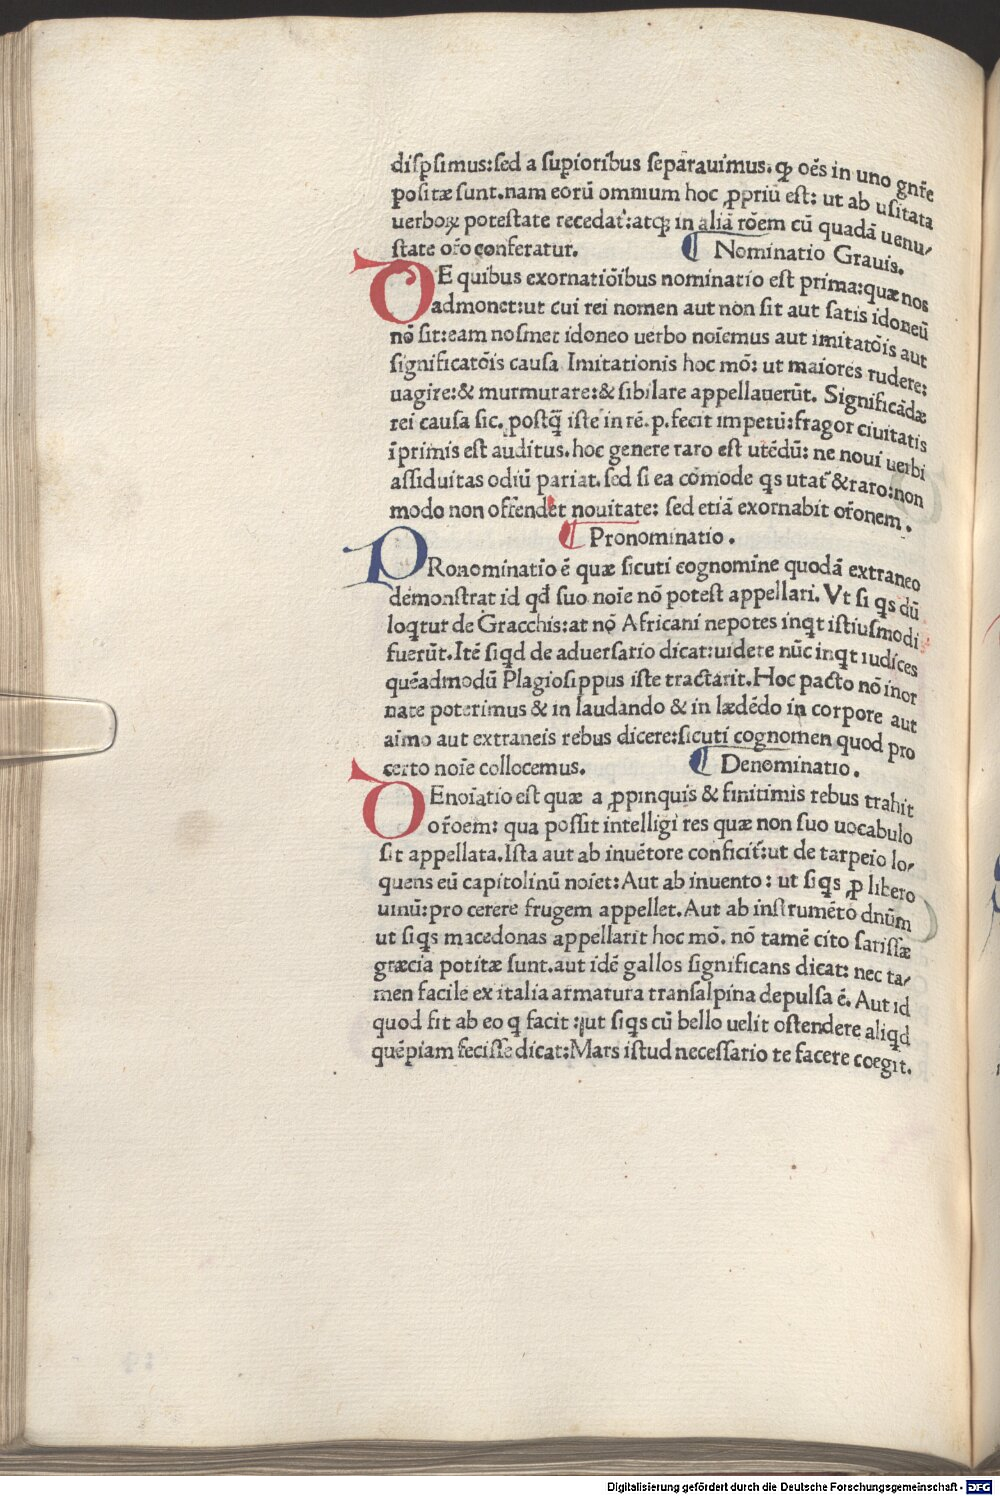 disꝑsimus:sed a suꝑioribus separauimus. ꝙ oẽs in uno gnr̃e
positæ sunt.nam eorũ omnium hoc ꝓpriũ est: ut ab usitata
uerboꝝ potestate recedat̃:atqꝫ in aliã rõem cũ quadã uenu⸗
state or̃o conferatur. ¶ Nominatio Grauis.
DE quibus exornatiõibus nominatio est prima:quæ nos
admonet:ut cui rei nomen aut non sit aut satis idoneũ
nõ sit:eam nosmet idoneo uerbo noĩemus aut imitatõis aut
significatõis causa Imitationis hoc mõ: ut maiores rudere:
uagire:& murmurare:& sibilare appellauerũt. Significãdæ
rei causa sic. postq̃ iste in rẽ.p.fecit impetũ:fragor ciuitatis
ĩprimis est auditus.hoc genere raro est utẽdũ: ne noui uerbi
assiduitas odiũ pariat.sed si ea cõmode qs utat̃ & raro:non
modo non offendet nouitate: sed etiã exornabit or̃onem.
¶ Pronominatio.
PRonominatio ẽ quæ sicuti cognomine quodã extraneo
demonstrat id qđ suo noĩe nõ potest appellari. Vt si qs dũ
loqtur de Gracchis:at nõ Africani nepotes inqt istiusmodi
fuerũt.Itẽ siqd de aduersario dicat:uidete nũc inqt iudices
quẽadmodũ Plagiosippus iste tractarit.Hoc pacto nõ inor
nate poterimus & in laudando & in lædẽdo in corpore aut
aĩmo aut extraneis rebus dicere:sicuti cognomen quod pro
certo noĩe collocemus. ¶ Denominatio.
DEnoĩatio est quæ a ꝓpinquis & finitimis rebus trahit
or̃oem: qua possit intelligi res quæ non suo uocabulo
sit appellata.Ista aut ab inuẽtore conficit̃:ut de tarpeio lo⸗
quens eũ capitolinũ noĩet:Aut ab inuento: ut siqs ꝓ libero
uinũ:pro cerere frugem appellet.Aut ab instrumẽto dnũm
ut siqs macedonas appellarit hoc mõ. nõ tamẽ cito sarissæ
græcia potitæ sunt.aut idẽ gallos significans dicat: nec ta⸗
men facile ex italia armatura transalpina depulsa ẽ. Aut id
quod fit ab eo q facit:ut siqs cũ bello uelit ostendere aliqd
quẽpiam fecisse dicat:Mars istud necessario te facere coegit.
Digitalisierung gefördert durch die Deutsche Forschungsgemeinschaft - DFG